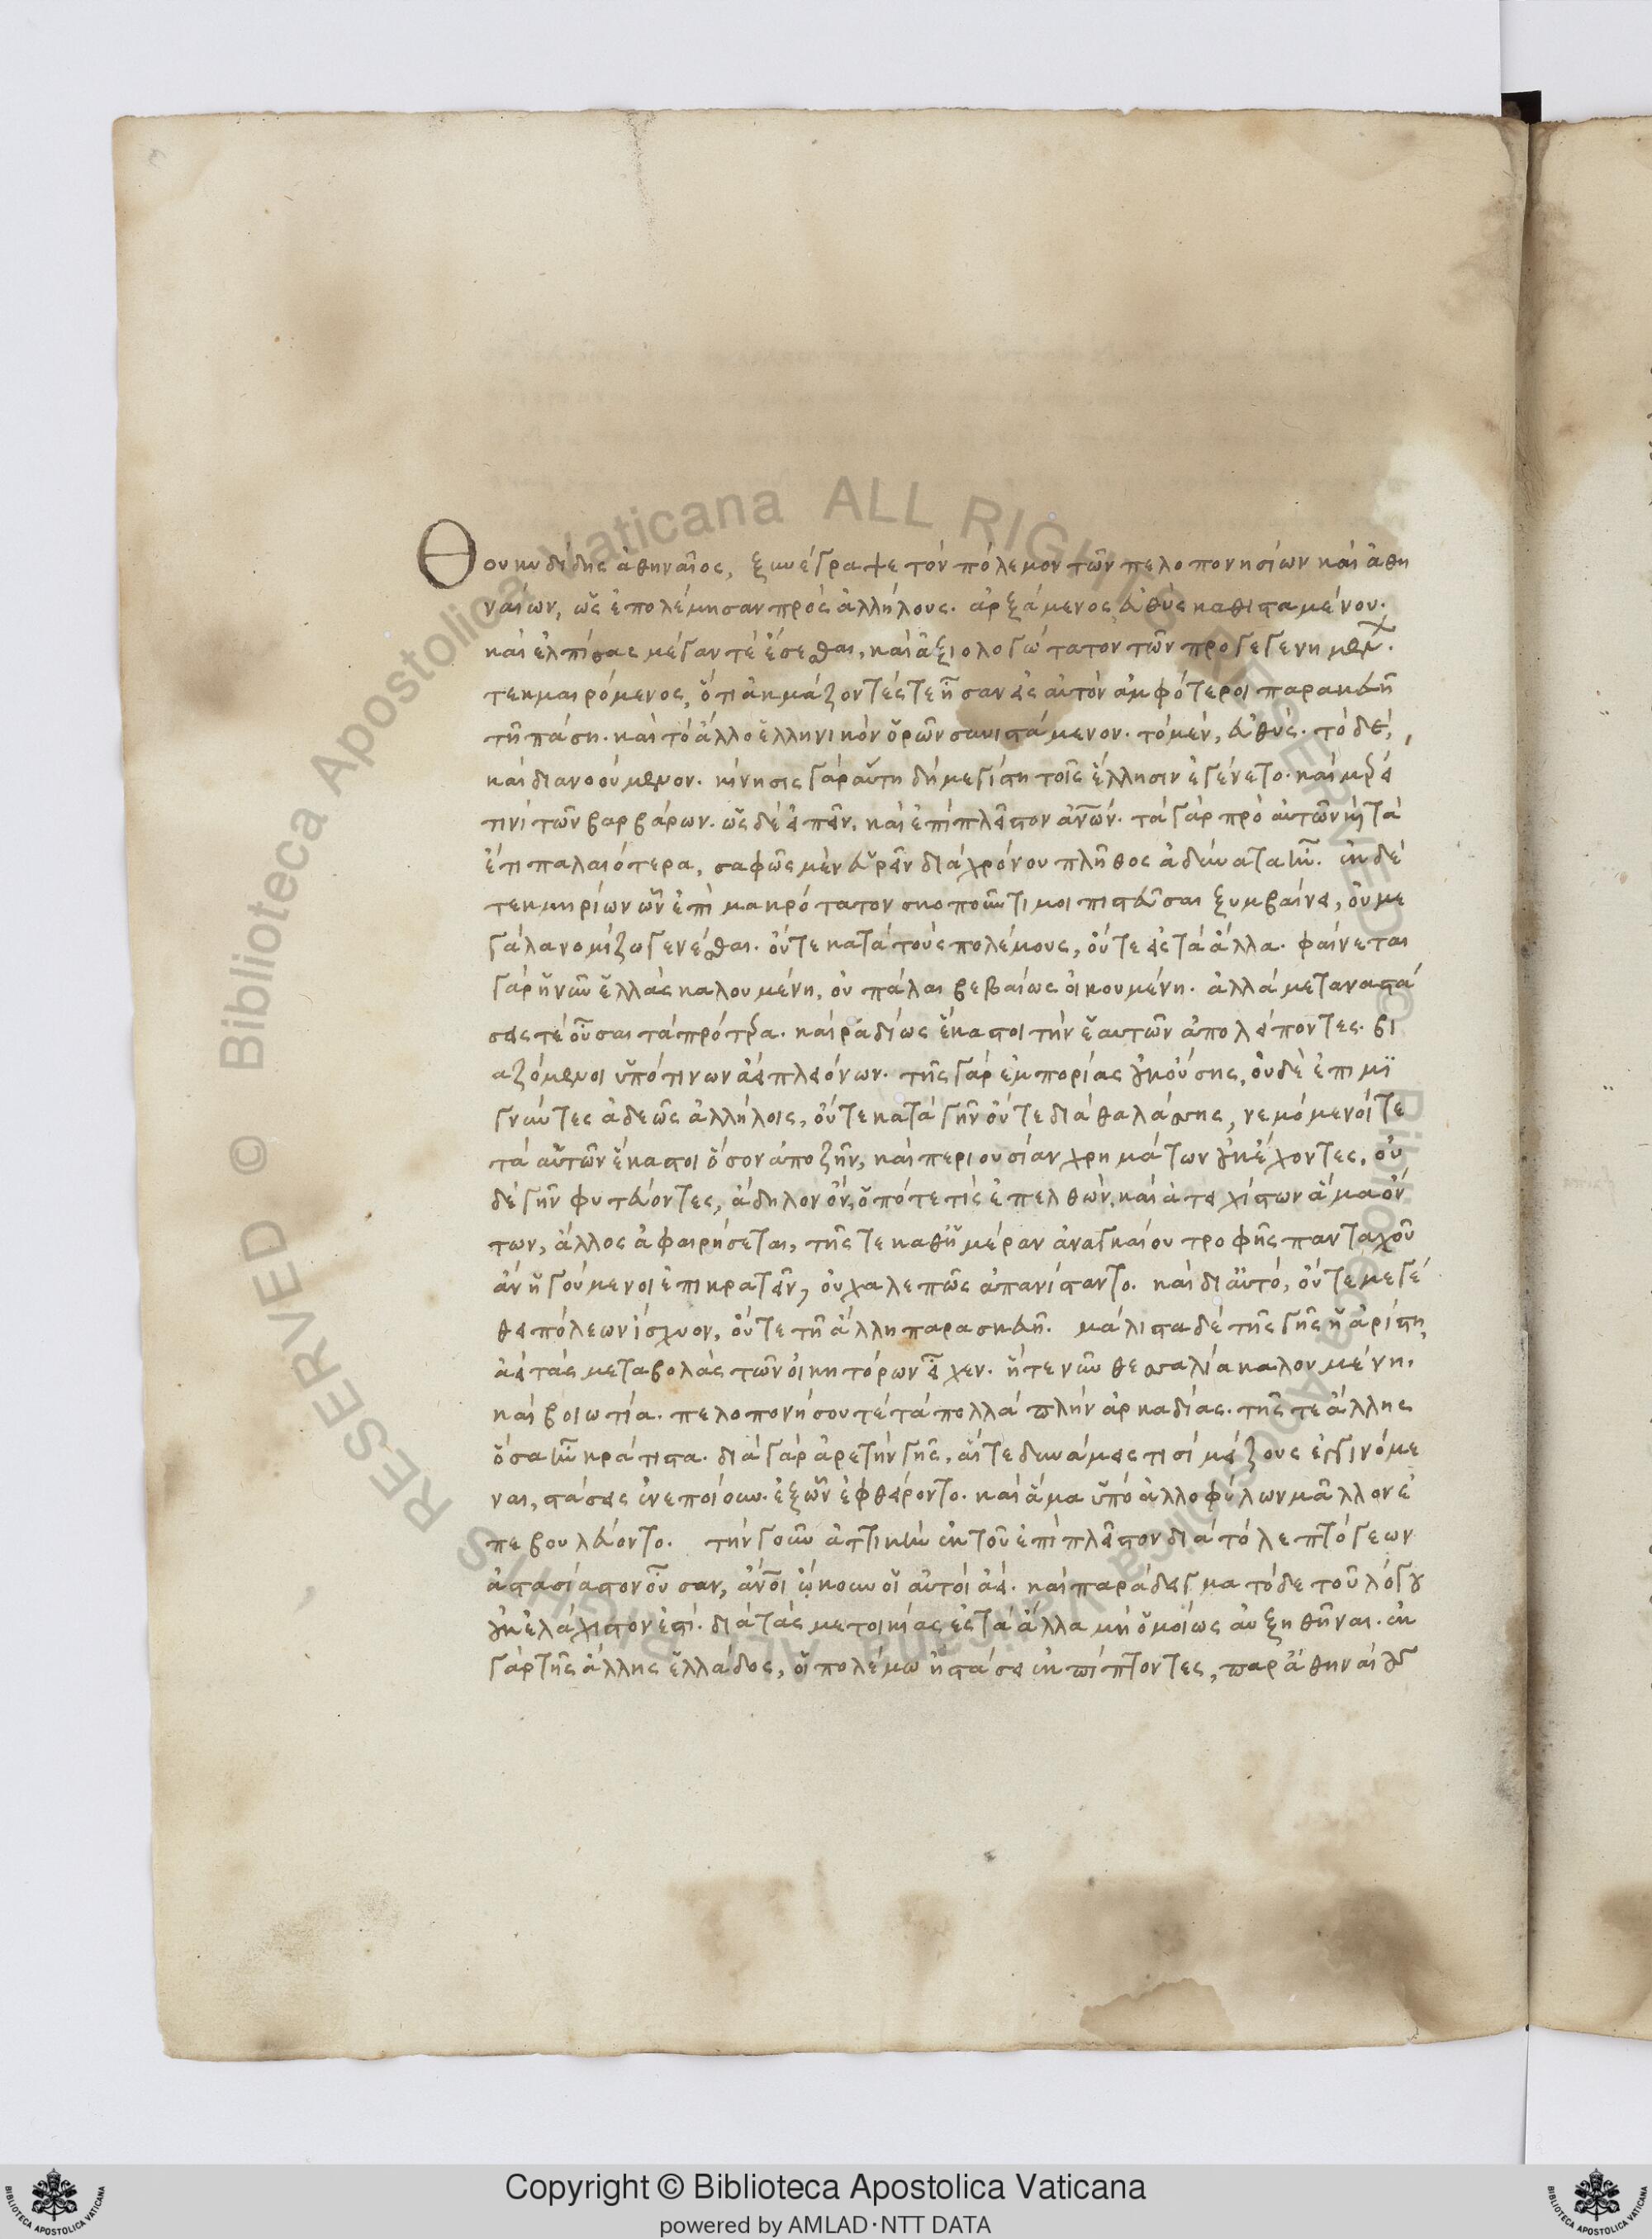 Θουκυδίδης ἀθηναῖος, ξυνέγραψε τὸν πόλεμον τῶν πελοποννησίων καὶ ἀθη
ναίων, ὡς ἐπολέμησαν πρὸς ἀλλήλους. ἀρξάμενος εὐθὺς καθισταμένου.
καὶ ἐλπίσας μέγαν τὲ ἔσεσθαι, καὶ ἀξιολογώτατον τῶν προγεγενημέν.
τεκμαιρόμενος, ὅτι ἀκμάζοντές τε ἦσαν ἐς αὐτὸν ἀμφότεροι παρασκευῇ
τῇ πάσῃ. καὶ τὸ ἄλλο ἑλληνικὸν ὁρῶν ξυνιστάμενον. τὸ μὲν, εὐθύς. τὸ δὲ,
καὶ διανοούμενον. κίνησις γὰρ αὕτη δὴ μεγίστη τοῖς ἕλλησιν ἐγένετο. καὶ μέρει
τινὶ τῶν βαρβάρων. ὡς δὲ εἰπεῖν, καὶ ἐπὶ πλεῖστον ἀνων. τὰ γὰρ πρὸ αὐτῶν καὶ τὰ
ἔτι παλαιότερα, σαφῶς μὲν εὑρεῖν διὰ χρόνου πλῆθος ἀδύνατα ἦν. ἐκ δὲ
τεκμηρίων ὧν ἐπὶ μακρότατον σκοποῦντι μοι πιστεῦσαι ξυμβαίνει, οὐ με
γάλα νομίζω γενέσθαι. οὔτε κατὰ τοὺς πολέμους, οὔτε εἰς τὰ ἄλλα. φαίνεται
γὰρ ἡ νῦν ἑλλὰς καλουμένη, οὐ πάλαι βεβαίως οἰκουμένη. ἀλλὰ μεταναστά
σεις τὲ οὖσαι τὰ πρότερα. καὶ ῥαδίως ἕκαστοι τὴν ἑαυτῶν ἀπολείποντες. βι
αζόμενοι ὑπό τινων ἀεὶ πλειόνων. τῆς γὰρ ἐμπορίας οὐκ οὔσης, οὐδὲ ἐπιμϊ
γνύντες ἀδεῶς ἀλλήλοις, οὔτε κατὰ γῆν οὔτε διὰ θαλάσσης, νεμόμενοί τε
τὰ αὑτῶν ἕκαστοι ὅσον ἀποζῆν, καὶ περιουσίαν χρημάτων οὐκ ἔχοντες, οὐ
δὲ γῆν φυτεύοντες, ἄδηλον ὂν, ὁπότε τὶς ἐπελθὼν, καὶ ἀτειχίστων ἅμα ὄν
των, ἄλλος ἀφαιρήσεται, τῆς τε καθ' ἡμέραν ἀναγκαίου τροφῆς πανταχοῦ
ἂν ἡγούμενοι ἐπικρατεῖν, οὐ χαλεπῶς ἀπανίσταντο. καὶ δι' αὐτὸ, οὔτε μεγέ
θει πόλεων ἴσχυον, οὔτε τῇ ἄλλῃ παρασκευῇ. μάλιστα δὲ τῆς γῆς ἡ ἀρίστη,
ἀεὶ τὰς μεταβολὰς τῶν οἰκητόρων εἶχεν. ἥ τε νῦν θεσσαλία καλουμένη,
καὶ βοιωτία. πελοποννήσου τέ τὰ πολλὰ πλὴν ἀρκαδίας. τῆς τε ἄλλης
ὅσα ἦν κράτιστα. διὰ γὰρ ἀρετὴν γῆς, αἵ τε δυνάμεις τισὶ μείζους ἐγγινόμε
ναι, στάσεις ἐνεποίουν. ἐξ ὧν ἐφθείροντο. καὶ ἅμα ὑπὸ ἀλλοφύλων μᾶλλον ἐ
πεβουλεύοντο. τὴν γοῦν ἀττικὴν ἐκ τοῦ ἐπὶ πλεῖστον διὰ τὸ λεπτόγεων
ἀστασίαστον οὖσαν, ἄνοι ᾤκουν οἱ αὐτοὶ ἀεί. καὶ παράδειγμα τόδε τοῦ λόγου
οὐκ ἐλάχιστον ἐστί. διὰ τὰς μετοικίας ἐς τὰ ἄλλα μὴ ὁμοίως αὐξηθῆναι. ἐκ
γὰρ τῆς ἄλλης ἑλλάδος, οἱ πολέμω ἢ στάσει ἐκπίπτοντες, παρ' ἀθηναίους
Copyright © Biblioteca Apostolica Vaticana
powered by AMLAD·NTT DATA